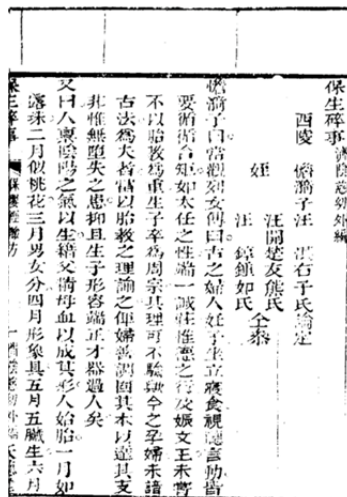 保生碎事 濟陰慈幼外編
西陵 憺漪子汪淇右子氏論定
姪 汪開楚友熊氏
汪鎮如氏 仝叅
憺漪子曰嘗觀列女傳曰古之婦人妊子坐立寢食視聽言動皆
要循循合矩如太任之性端一誠莊惟德之行及娠文王未嘗
不以胎教爲重生子卒爲周宗其理可不驗歟今之孕婦未諳
古法爲夫者當以胎教之理諭之俾婦善調固其本以達其支
非惟無墮失之患抑且生子形容端正才器過人矣
又曰人稟陰陽之氣以生藉父精母血以成其形人始胎一月如
露珠二月似桃花三月男女分四月形象具五月五臟生六月
保生碎事